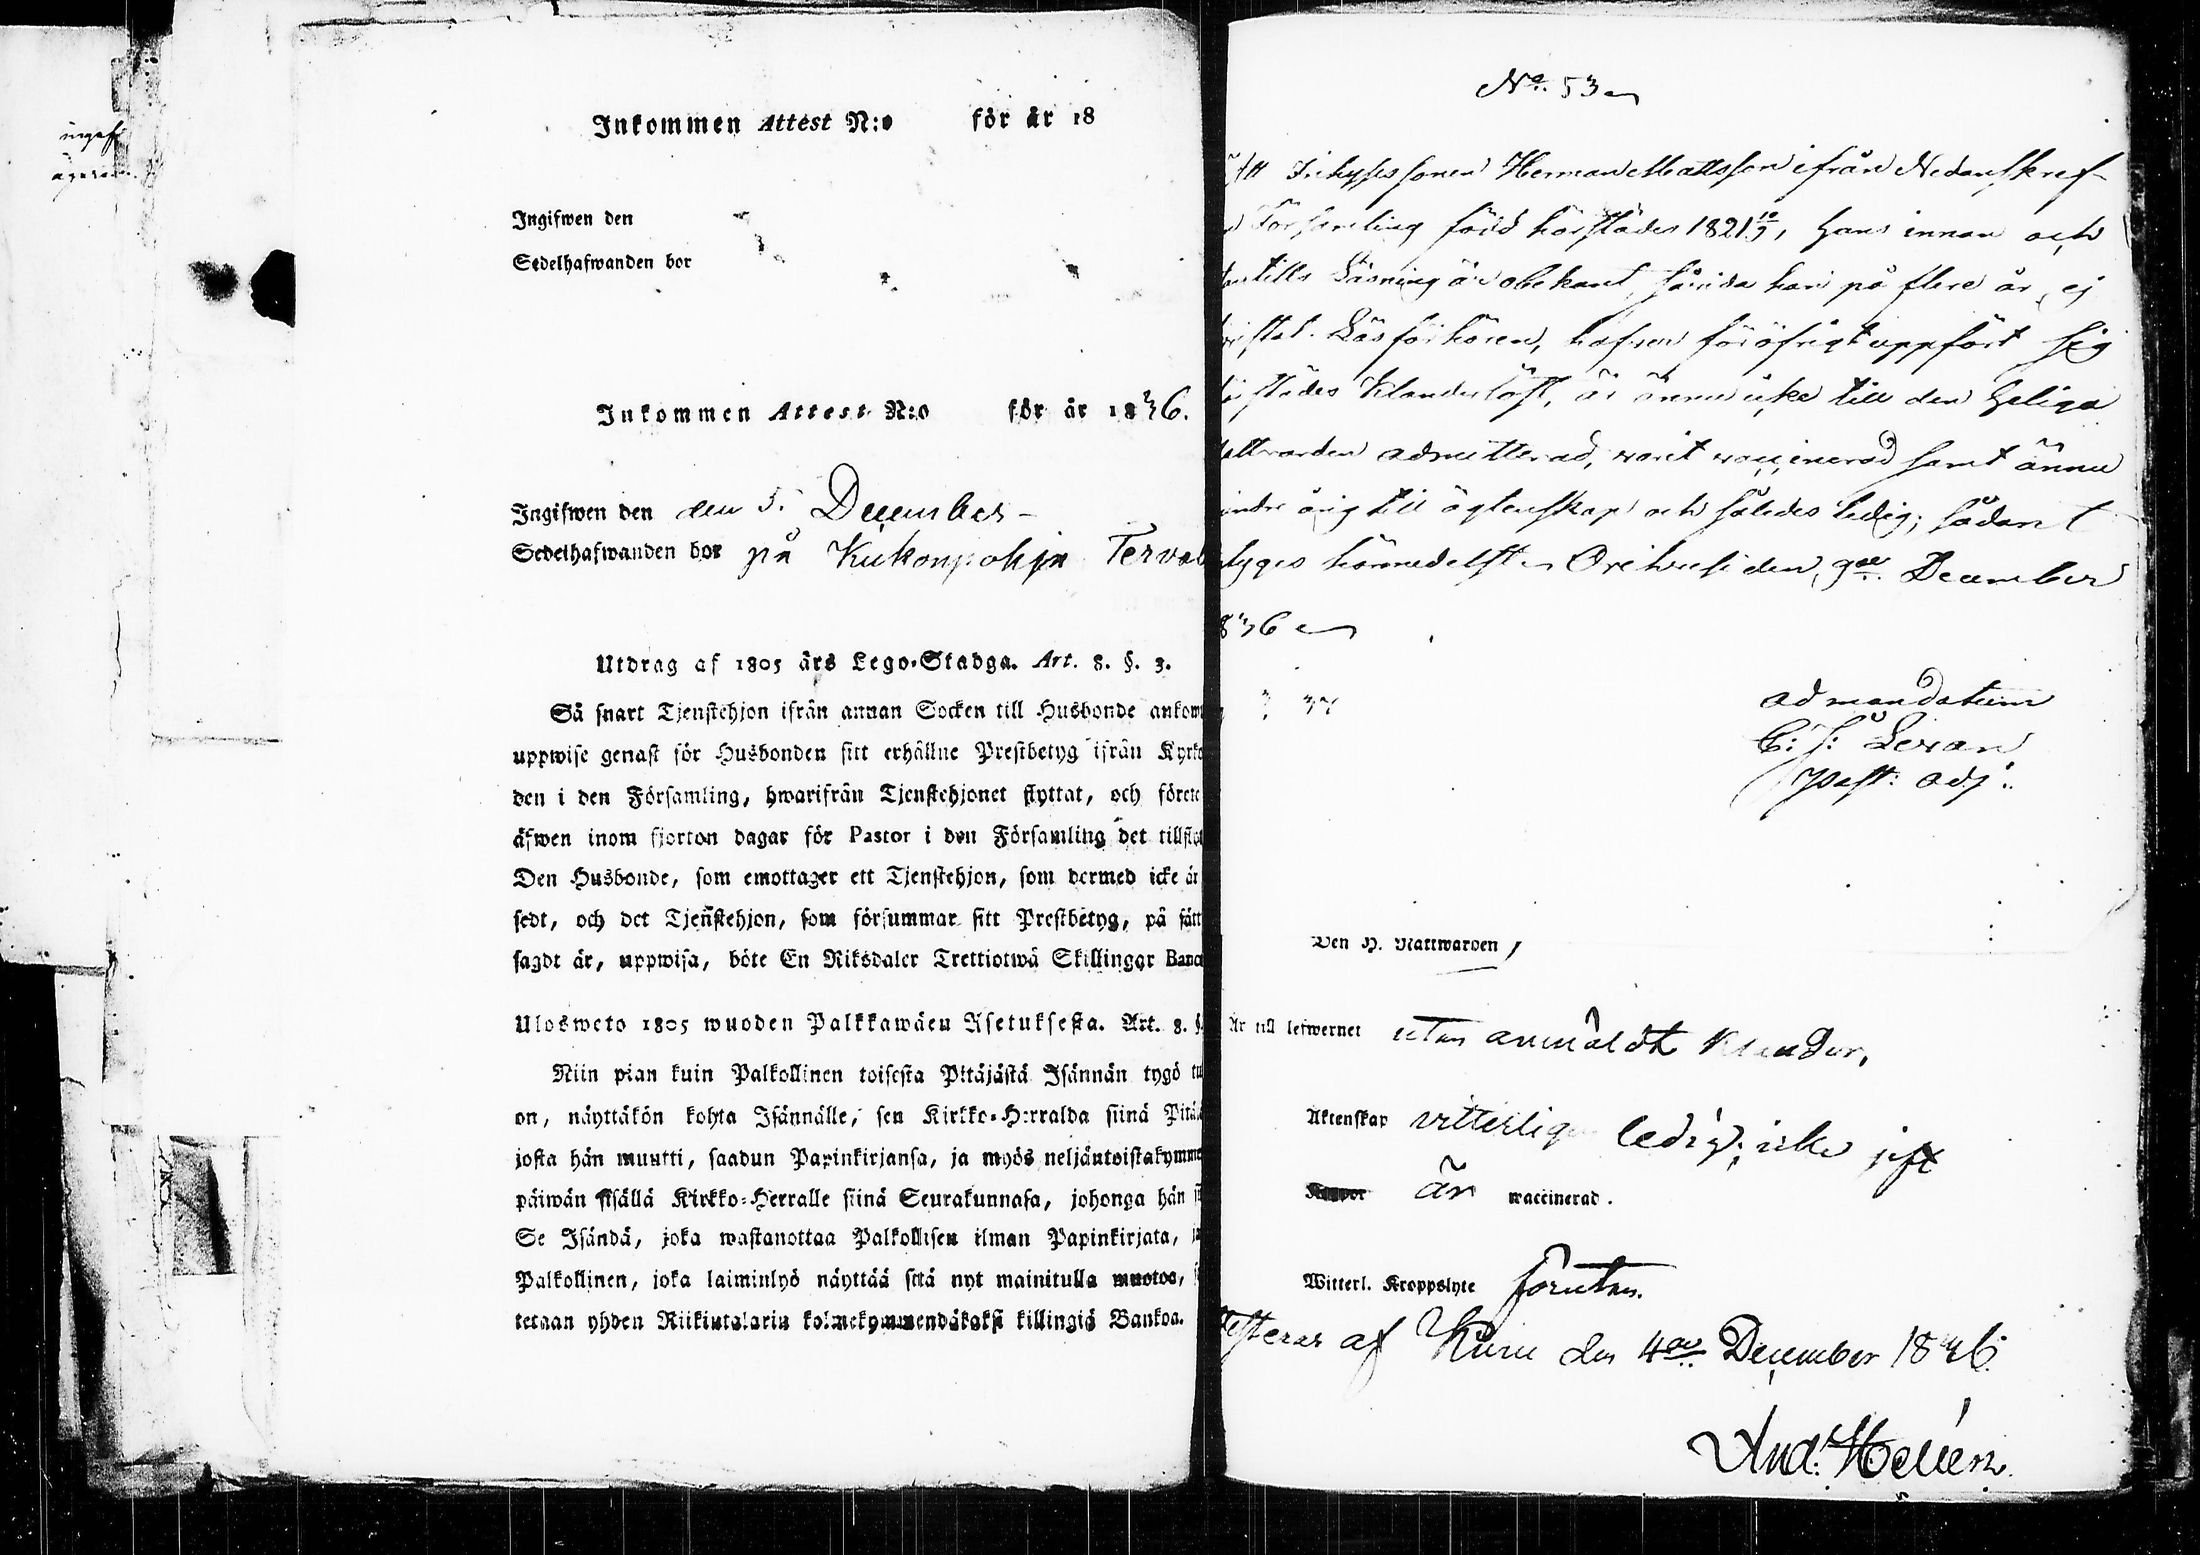 Inkommen Attest N:o för år 18
Ingifwen den
Sedelhafwanden bor
Inkommen Attest N:o för år 1836.
Ingifwen den den 5. December
Sedelhafwanden bor på Kukonpohja
Utdrag af 1805 års Lego-Stadga. Art. 8. §. 3.
Så snart Tjenstehjon ifrån annan Socken till Husbonde
uppwise genast för Husbonden sitt erhållne Prestbetyg ifrån
den i den Församling, hwarifrån Tjenstehjonet flyttat, och
äfwen inom fjorton dagar för Pastor i den Församling det
Den Husbonde, som emottager ett Tjenstehjon, som dermed icke är
sedt, och det Tjenstehjon, som försummar sitt Prestbetyg, på sätt
sagdt är, uppwisa, böte En Riksdaler Trettiotwå Skillingar
Ulosweto 1805 wuoden Palkkawäen Asetuksesta. Art. 8.
Niin pian kuin Palkollinen toisesta Pitäjästä Isännän tygö
on, näyttäkön kohta Isännälle, sen Kirkko-Herralda siinä
josta hän muutti, saadun Papinkirjansa, ja myös
päiwän sisällä Kirkko-Herralle siinä Seurakunnasa, johonga hän
Se Isändä, joka wastanottaa Palkollisen ilman Papinkirjata,
Palkollinen, joka laiminlyö näyttää sitä nyt mainitulla muotoa,
tetaan yhden Riikintalarin kolmekymmendäkaksi killingiä Bankoa.
No. 53
Att Inhyses sonen Herman Mattsson ifrån
Församling född härstädes 1821 10/9, hans innan och
Läsning är obekant, sånida han på flere år ej
Läsförhören, hafven för öfrigt uppfört sig
Klanderlöst, är ännu icke till den Heliga
admitterad, varit vaccinerad samt ännu
årig till ägtenskap och således ledig; sådant
härmedelst. Orihvesi den 9de December
836
ad mandatum
C: J: Lexan
past: adj:
Den H. Nattwarden
Är till lefwernet utan anmäldt klander,
Äktenskap vitterligen ledig, icke
är waccinerad.
Witterl. Kroppslyte förutan.
af Kuru den 4de December 1836.
And: Hellén